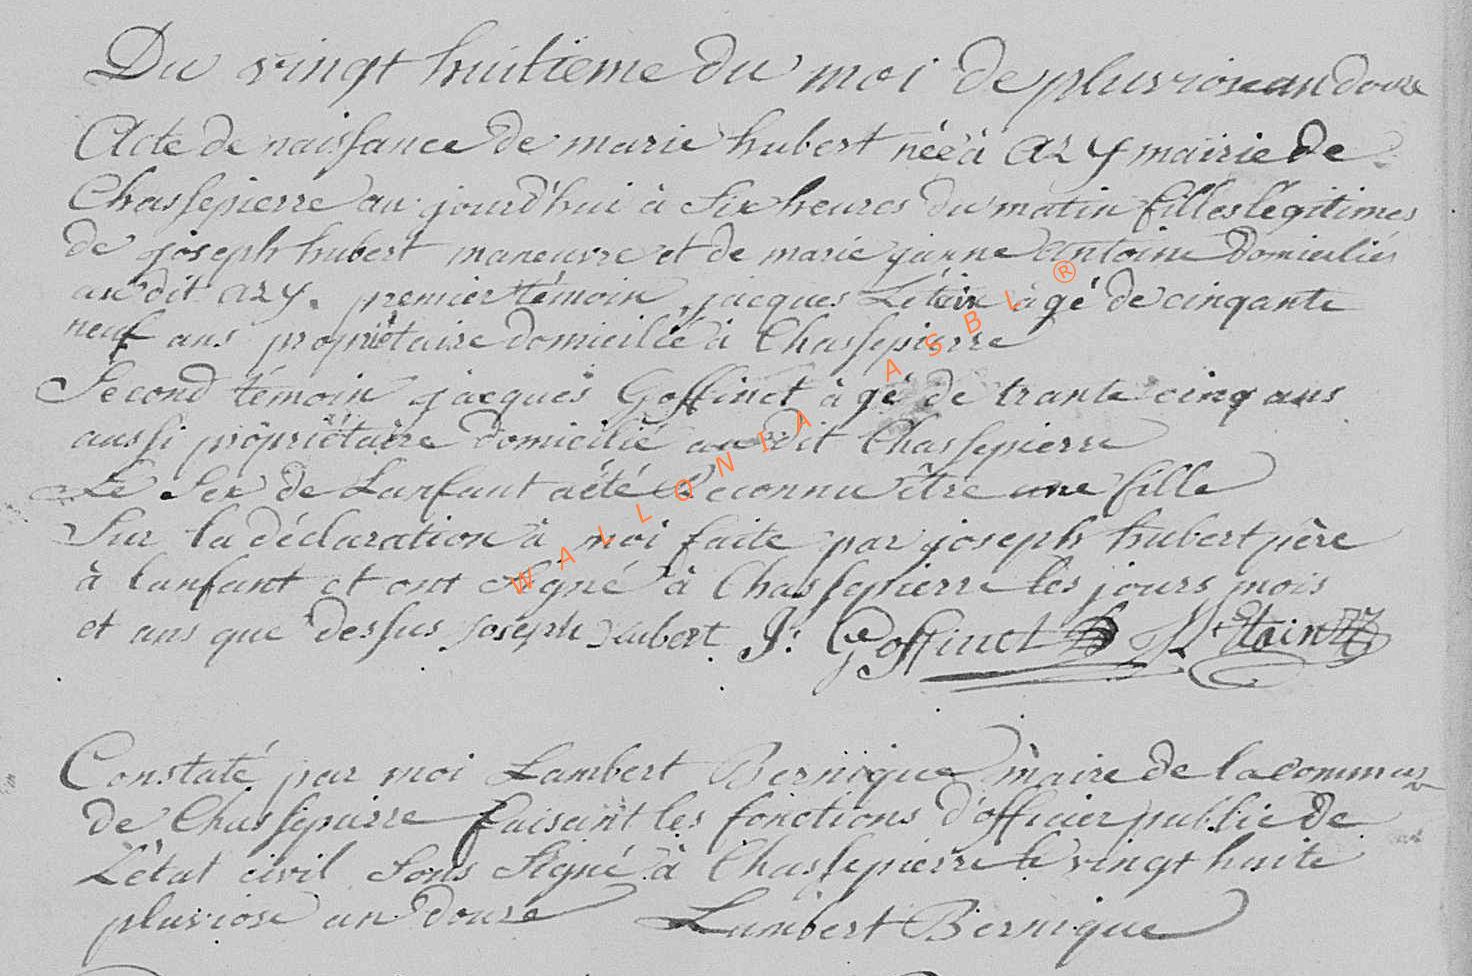 Du vingt huitieme du moi de pluviose an douze
Acte de naissance de marie hubert née à azy mairie de
Chassepierre au jourd'hui à six heures du matin filles légitimes
de joseph hubert maneuvre et de marie janne antoine Domiciliés
au dit azy. premier témoin jacques Létain àgé de cinqante
neuf ans propriétaire domicilié à Chassepierre
Second témoin jacques Goffinet àgé de trante cinq ans
aussi propriétaire domicilié au dit Chassepierre
Le Sex de Lanfant aété Reconnu être une fille
Sur la déclaration à moi faite par joseph hubert père
à lanfant et ont signé à Chassepierre les jours mois
et ans que dessus joseph hubert J: Goffinet Létain
Constaté par moi Lambert Bernique maire de la commun
de Chassepierre faisant les fonctions d'officier public de
L'état civil Sous Signé à Chassepierre le vingt huite
pluviose an douze Lambert Bernique
WALLONIA ASBL ®